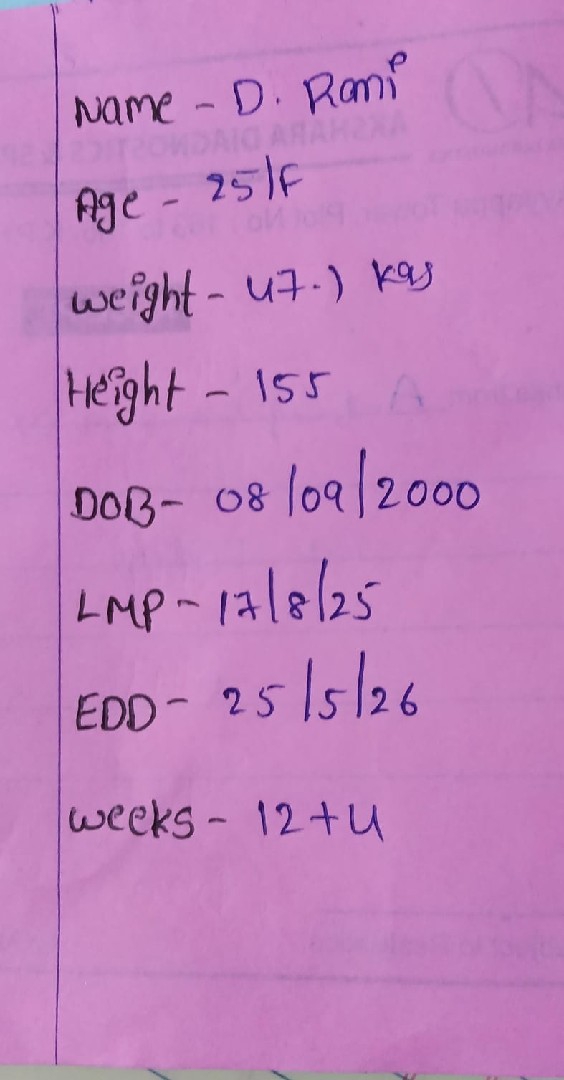 Name - D. Rani
Age - 25/F
weight - 47.1 kgs
Height - 155
DOB - 08/09/2000
LMP - 17/8/25
EDD - 25/5/26
weeks - 12+4
AKSHARA DIAGNOSTICS & SP